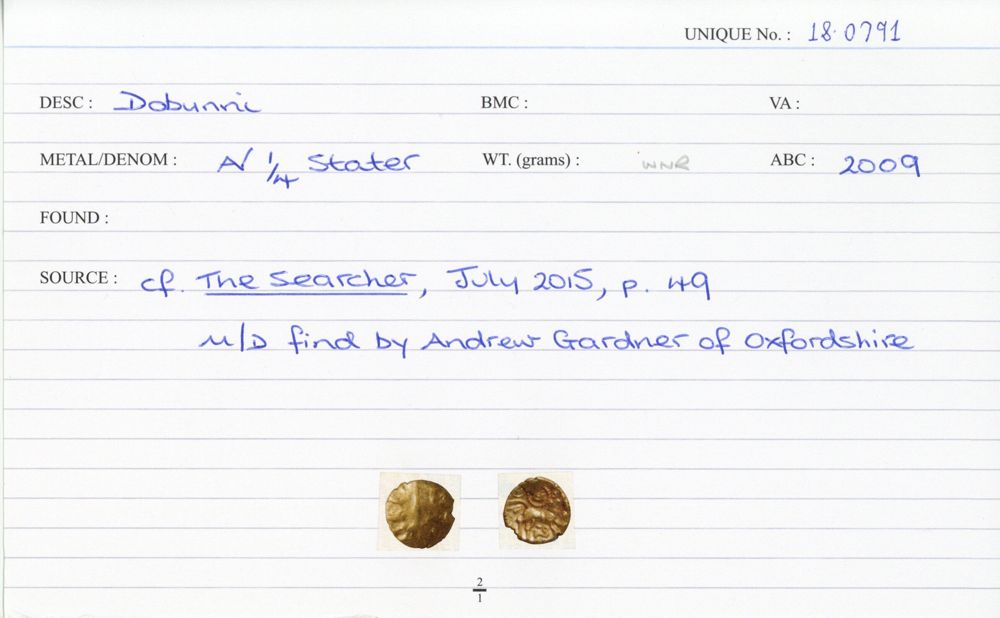 UNIQUE No. : 18.0791
DESC : Dobunnic BMC : VA :
METAL/DENOM : AV 1/4 Stater WT. (grams) : WNR ABC : 2009
FOUND :
SOURCE : cf. The Searcher, July 2015, p. 49
M/D find by Andrew Gardner of Oxfordshire
2
1